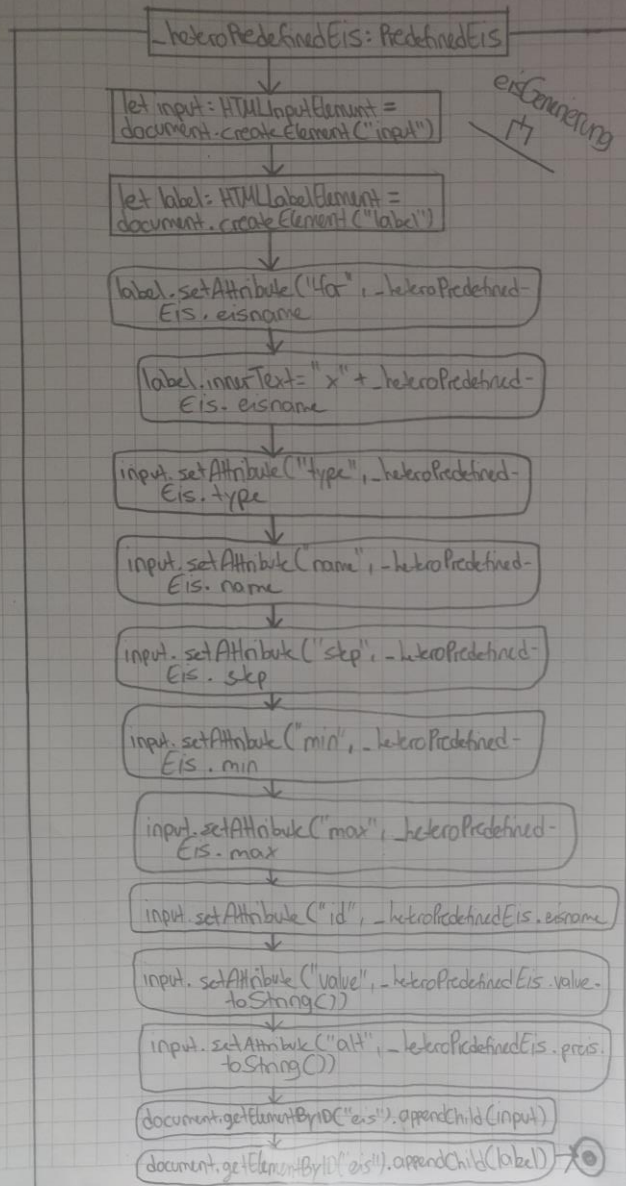 _heteroPredefinedEis: PredefinedEis
eisGenerierung
let input: HTMLInputElement =
document.createElement("input")
let label: HTMLLabelElement =
document.createElement("label")
label.setAttribute("for", _heteroPredefined-
Eis.eisname
label.innerText= "x" + _heteroPredefined-
Eis.eisname
input.setAttribute("type", _heteroPredefined-
Eis.type
input.setAttribute("name", _heteroPredefined-
Eis.name
input.setAttribute("step", _heteroPredefined-
Eis.step
input.setAttribute("min", _heteroPredefined-
Eis.min
input.setAttribute("max", _heteroPredefined-
Eis.max
input.setAttribute("id", _heteroPredefinedEis.eisname
input.setAttribute("value", _heteroPredefinedEis.value.
toString())
input.setAttribute("alt", _heteroPredefinedEis.preis.
toString())
document.getElementByID("eis").appendChild(input)
document.getElementByID("eis").appendChild(label)